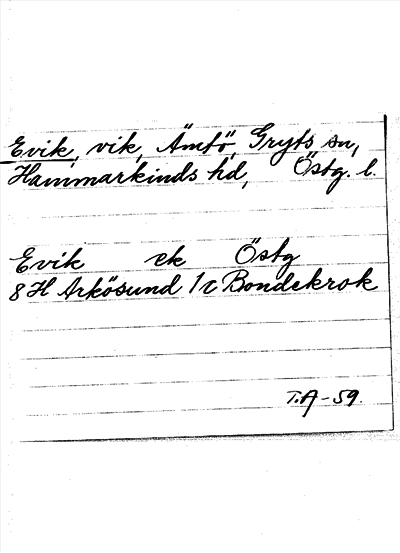 Evik, vik, Ämtö, Gryts sn,
Hammarkinds hd, Östg. l.
Evik ek Östg
8H Arkösund 1c Bondekrok
T.A-59.